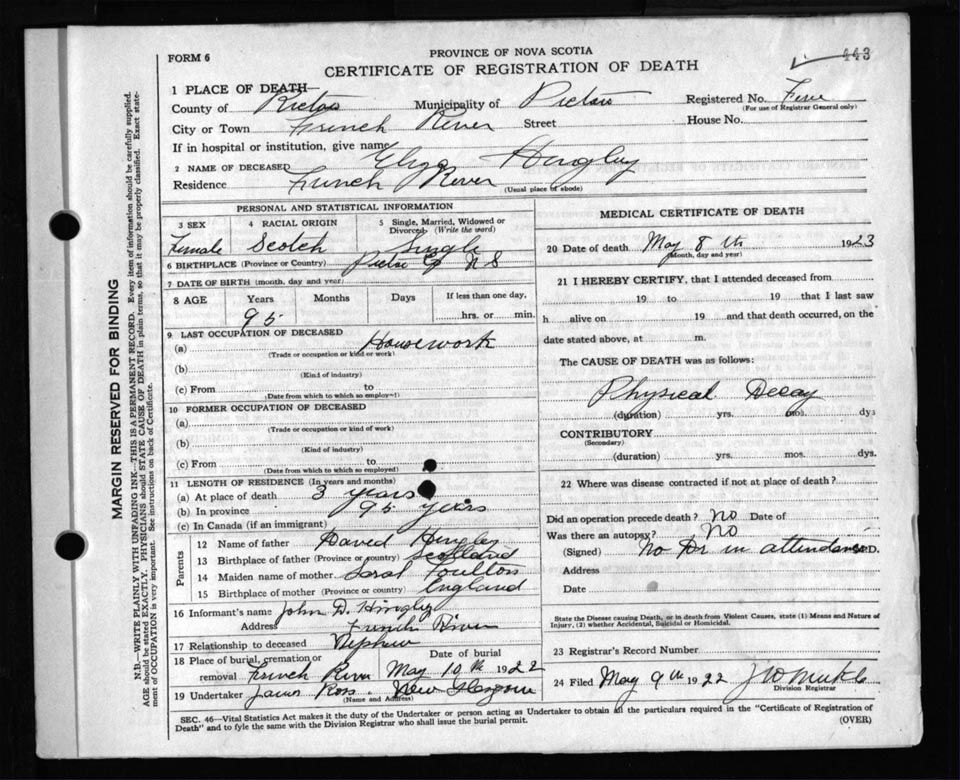 FORM 6
PROVINCE OF NOVA SCOTIA
443
CERTIFICATE OF REGISTRATION OF DEATH
1 PLACE OF DEATH—
County of Pictou Municipality of Pictou Registered No. Five
(For use of Registrar General only)
City or Town French River Street House No.
If in hospital or institution, give name
2 NAME OF DECEASED Eliza Hingley
Residence French River (Usual place of abode)
PERSONAL AND STATISTICAL INFORMATION
3 SEX Female
4 RACIAL ORIGIN Scotch
5 Single, Married, Widowed or Divorced (Write the word) Single
6 BIRTHPLACE (Province or Country) Pictou Co N S
7 DATE OF BIRTH (month, day and year)
8 AGE Years Months Days If less than one day,
95 hrs. or min.
9 LAST OCCUPATION OF DECEASED
(a) Housework
(Trade or occupation or kind of work)
(b)
(Kind of industry)
(c) From to
(Date from which to which so employed)
10 FORMER OCCUPATION OF DECEASED
(a)
(Trade or occupation or kind of work)
(b)
(Kind of industry)
(c) From to
(Date from which to which so employed)
11 LENGTH OF RESIDENCE (In years and months)
(a) At place of death 3 years
(b) In province 95 years
(c) In Canada (if an immigrant)
Parents
12 Name of father David Hingley
13 Birthplace of father (Province or country) Scotland
14 Maiden name of mother Sarah Poulton
15 Birthplace of mother (Province or country) England
16 Informant's name John D. Hingley
Address French River
17 Relationship to deceased Nephew
18 Place of burial, cremation or removal French River Date of burial May 10th 1922
19 Undertaker James Ross. New Glasgow
(Name and Address)
MEDICAL CERTIFICATE OF DEATH
20 Date of death May 8th 1923
(Month, day and year)
21 I HEREBY CERTIFY, that I attended deceased from
19 to 19 that I last saw
h alive on 19 and that death occurred, on the
date stated above, at m.
The CAUSE OF DEATH was as follows:
Physical Decay
(duration) yrs. mos. dys
CONTRIBUTORY
(Secondary)
(duration) yrs. mos. dys.
22 Where was disease contracted if not at place of death?
Did an operation precede death? No Date of
Was there an autopsy? No
(Signed) No Dr in attendance M.D.
Address
Date
State the Disease causing Death, or in death from Violent Causes, state (1) Means and Nature of
Injury, (2) whether Accidental, Suicidal or Homicidal.
23 Registrar's Record Number
24 Filed May 9th 1922
Division Registrar
SEC. 46—Vital Statistics Act makes it the duty of the Undertaker or person acting as Undertaker to obtain all the particulars required in the "Certificate of Registration of
Death" and to fyle the same with the Division Registrar who shall issue the burial permit.
(OVER)
MARGIN RESERVED FOR BINDING
N.B.—WRITE PLAINLY WITH UNFADING INK—THIS IS A PERMANENT RECORD. Every item of information should be carefully supplied.
AGE should be stated EXACTLY. PHYSICIANS should STATE CAUSE OF DEATH in plain terms, so that it may be properly classified. Exact state-
ment of OCCUPATION is very important. See instructions on back of Certificate.